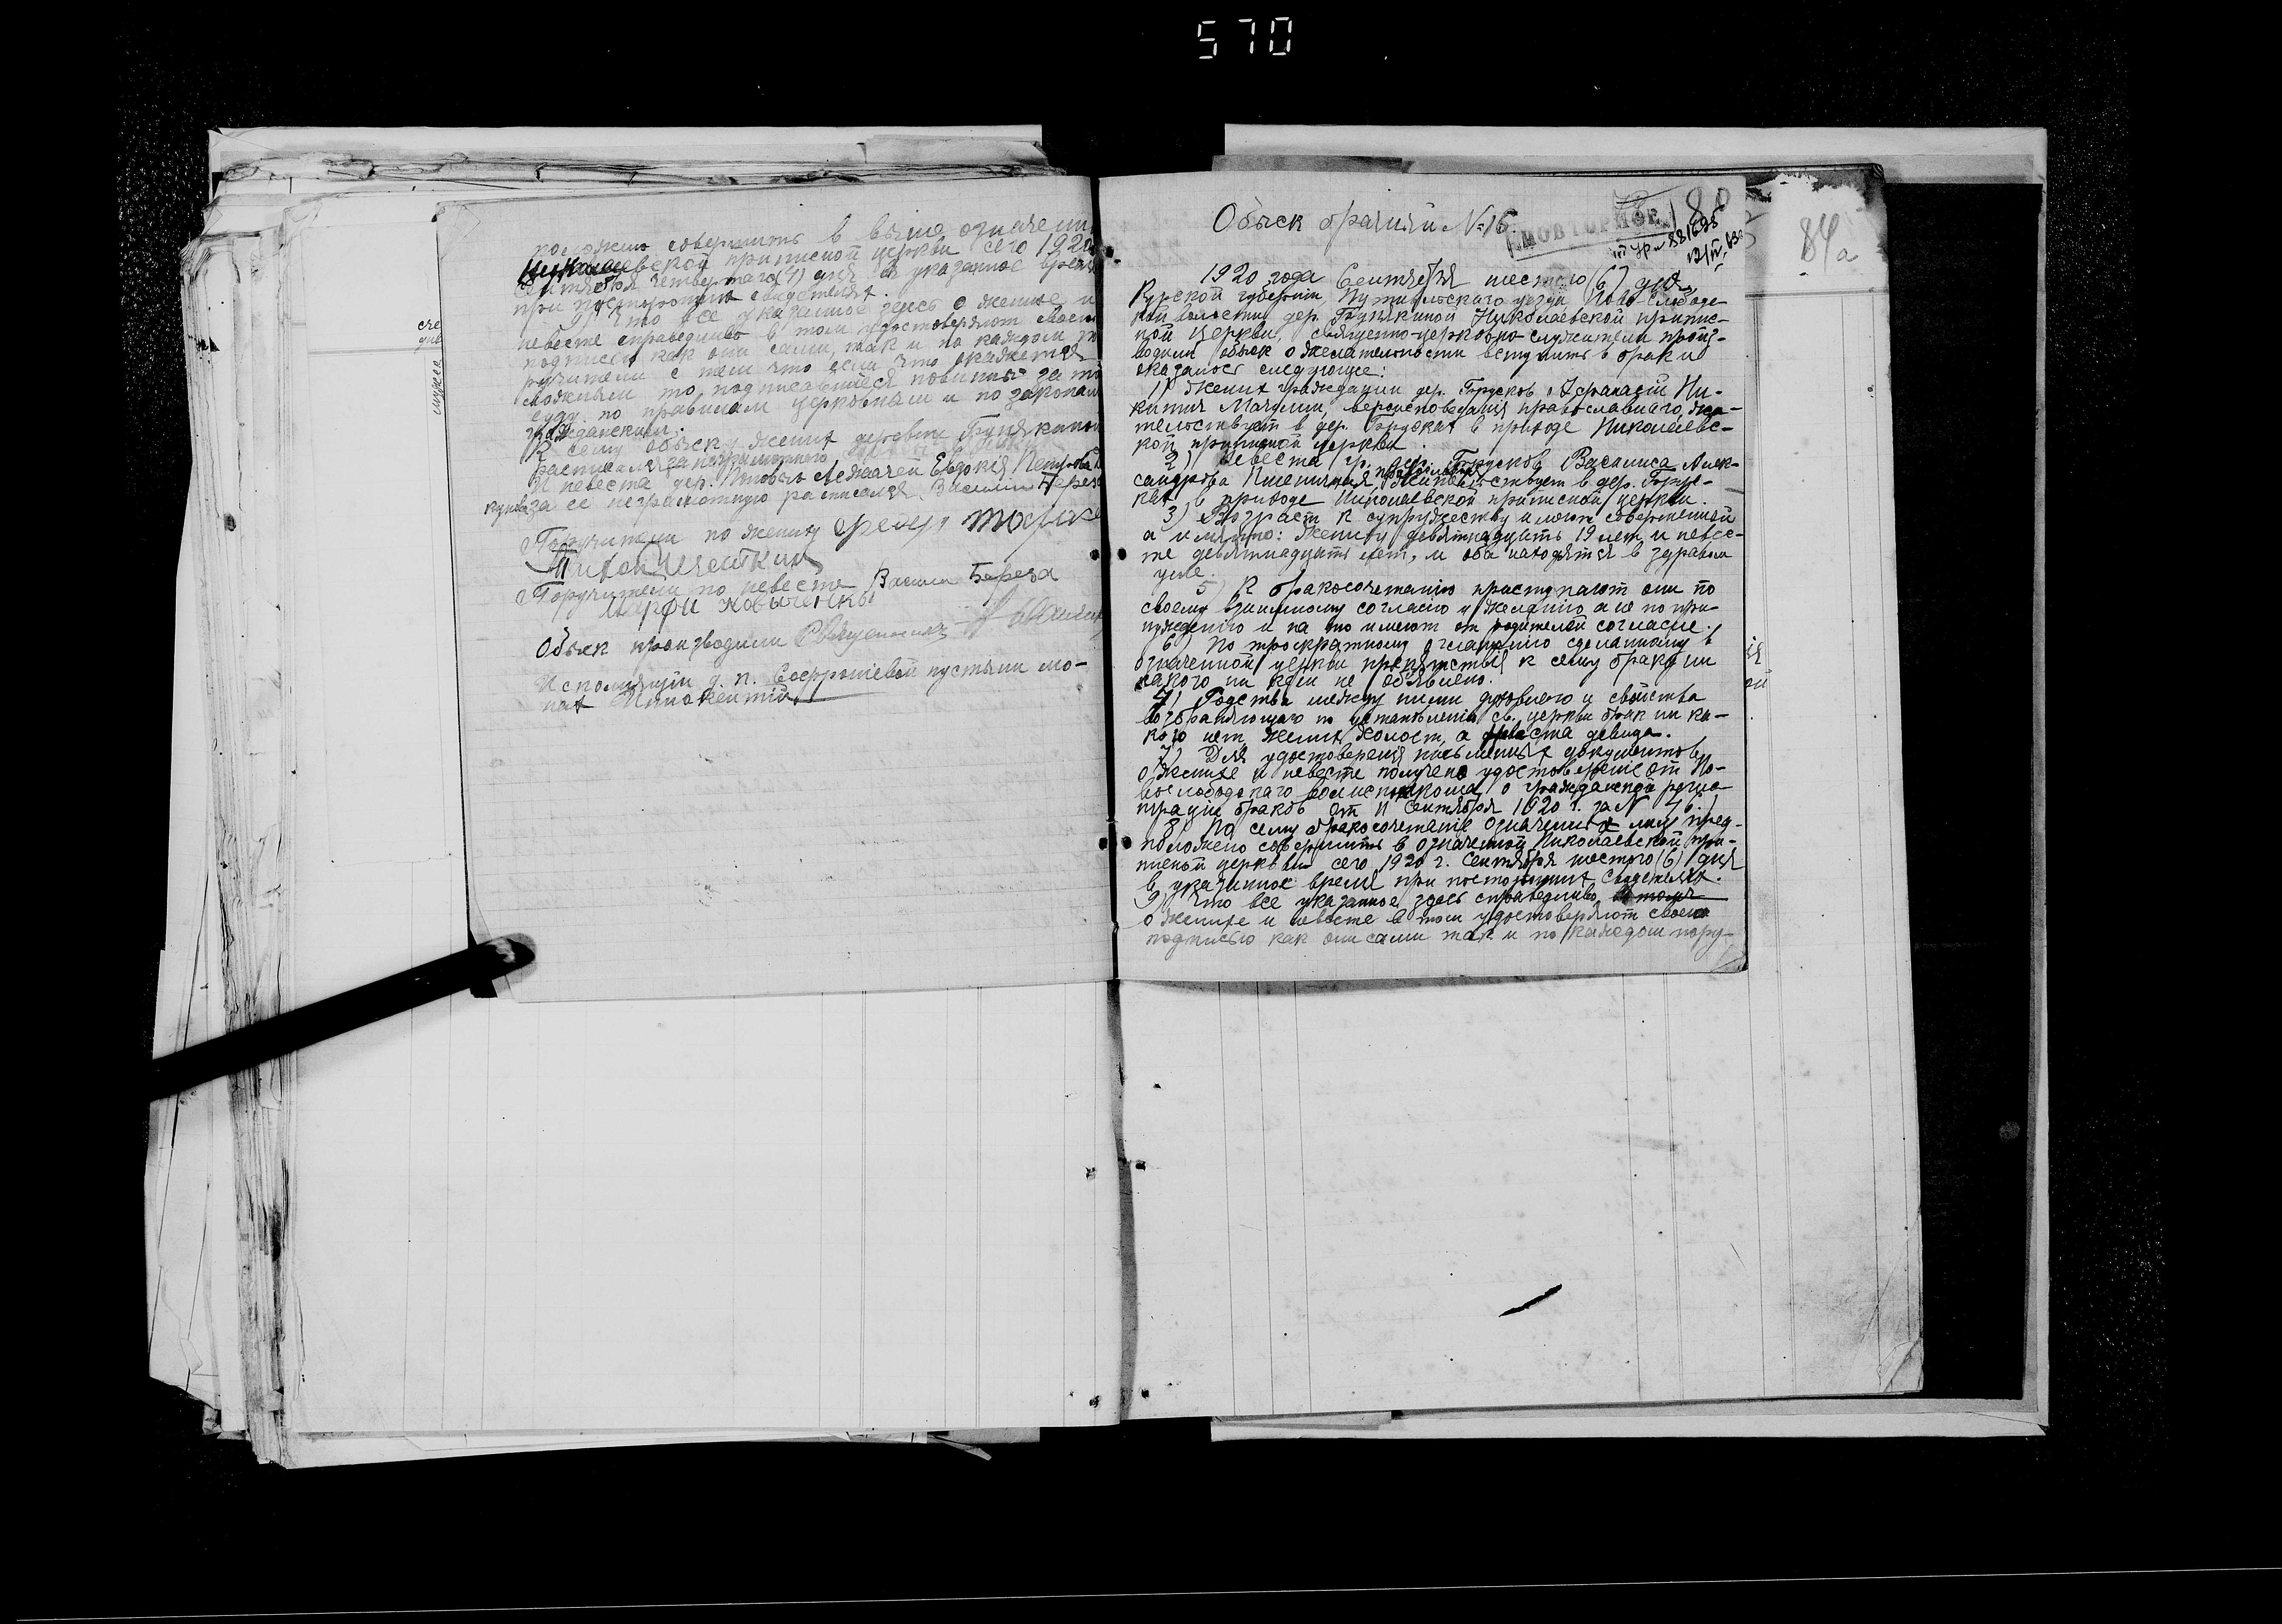 570
положено совершить в выше означенн
Николаевской приписной церкви сего 1920
Сентября четвертаго (4) дня в указанное время
при посторонних свидетелях.
9) Что все указанное здесь о женихе и
невесте справедливо в том удостоверяют своею
подписью как они сами, так и по каждом по
ручители с тем что если что окажется
ложным то, подписавшиеся повинны за то
суду по правилам церковным и по законам
гражданским.
К сему обыску жених деревни Бунякиной
расписался за неграмотного
И невеста дер. Лежачей Евдокия Петрова
за ее неграмотную расписался Василий Береза
Поручители по женихе
Тихон
Поручители по невесте Василий Береза
Обыск производили Священник
Исполняющий д. п. Софрониевой пустыни мо-
нах Инокентий
Обыск брачный № 16.
ПОВТОРНОЕ
80
84а
1920 года Сентября шестого (6) дня,
Курской губернии, Путивльского уезда Ново-Слободс-
кой волости дер. Бунякиной Николаевской припис-
ной церкви, священно-церковно служители произ-
водили обыск о желательности вступить в брак и
оказалось следующее:
1) Жених гражданин дер. Брусков Афанасий Ни-
китич вероисповедания православнаго, жи-
тельствует в дер. Брусках в приходе Николаевс-
кой приписной церкви.
2) Невеста гр. дер. Брусков Василиса Алек-
сандрова православная, Жительствует в дер. Брус-
ках в приходе Николаевской приписной церкви.
3) Возраст к супружеству имеют совершенной
а именно: Жениху девятнадцать 19 лет, и невес-
те девятнадцать лет, и оба находятся в здравом
уме.
5) К бракосочетанию приступают они по
своему взаимному согласию и желанию а не по при-
нуждению и на то имеют от родителей согласие.
6) По троекратному оглашению сделанному в
означенной церкви препятствия к сему браку ни
какого ни кем не объявлено.
4) Родства между ними духовного и свойства
возбраняющаго по установлению св. церкви брак ни ка-
кого нет, жених холост, а невеста девица.
7) Для удостоверения письменных документов
о женихе и невесте получено удостоверение от Но-
вослободскаго волисполкома о гражданской регис-
трации браков от 11 Сентября 1920 г. за № 46.
8) По сему бракосочетание означенных лиц пред-
положено совершить в означенной Николаевской при-
писной церкви сего 1920 г. Сентября шестого (6) дня
в указанное время при посторонних свидетелях.
9) Что все указанное здесь справедливо
о женихе и невесте в том удостоверяют своею
подписью как они сами так и по каждом пору-